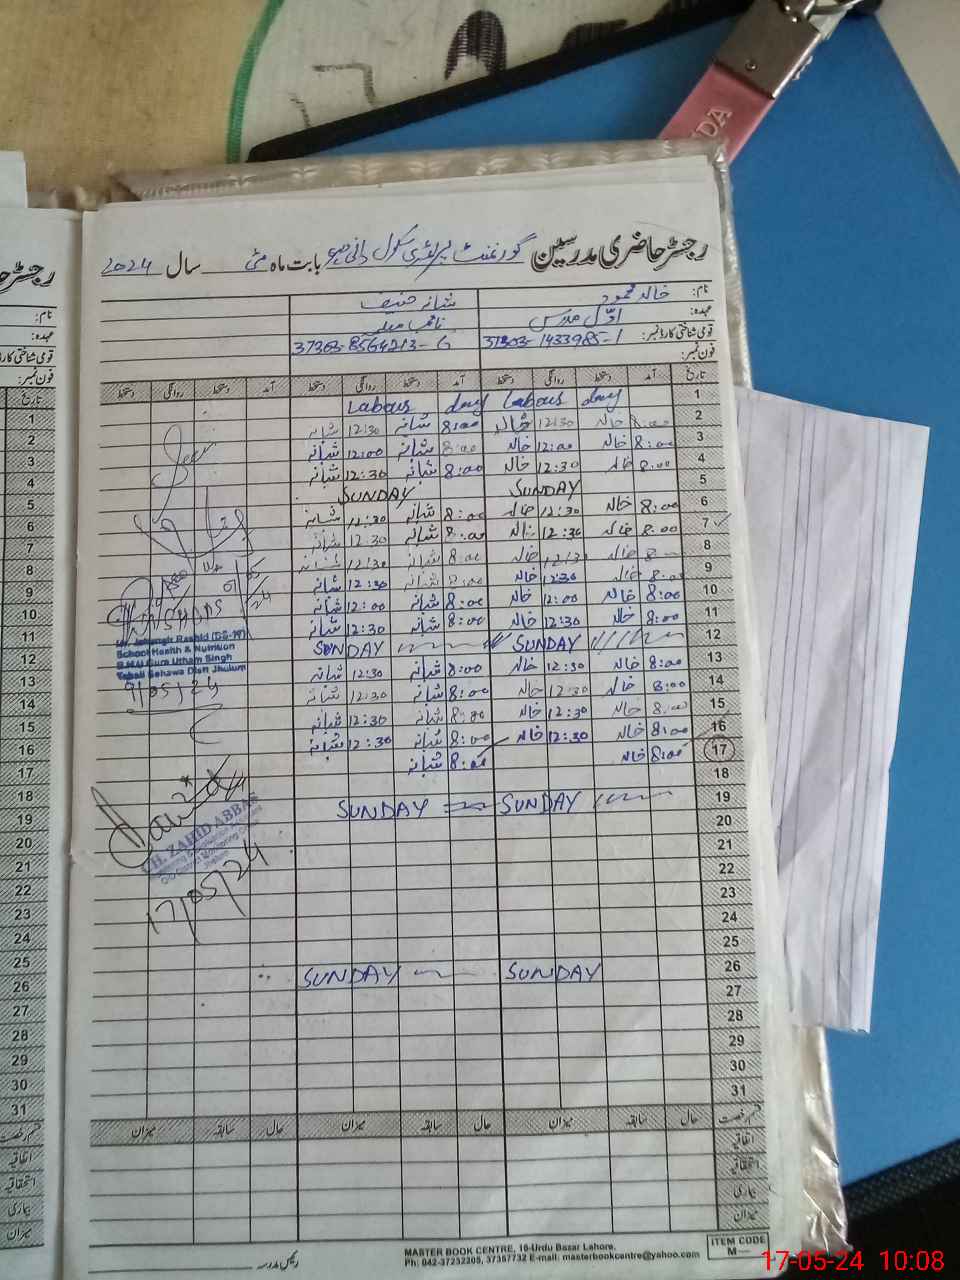 رجسٹر حاضری مدرسین گورنمنٹ پرائمری سکول بابت ماہ مئی سال 2024
نام: خالد محمود شبانہ حنیف
عہدہ: اوّل مدرس
قومی شناختی کارڈ نمبر: 37303-1433985-1 37303-8564213-6
فون نمبر:
تاریخ آمد دستخط روانگی دستخط آمد دستخط روانگی دستخط آمد دستخط روانگی دستخط
1 Labour day Labour day
2 8:00 خالد 12:30 خالد 8:00 شبانہ 12:30 شبانہ
3 8:00 خالد 12:00 خالد 8:00 شبانہ 12:00 شبانہ
4 8:00 خالد 12:30 خالد 8:00 شبانہ 12:30 شبانہ
5 SUNDAY SUNDAY
6 8:00 خالد 12:30 خالد 8:00 شبانہ 12:30 شبانہ
7 8:00 خالد 12:30 خالد 8:00 شبانہ 12:30 شبانہ
8 خالد 12:30 خالد 8:00 شبانہ 12:30 شبانہ
9 8:00 خالد 12:30 خالد 8:00 شبانہ 12:30 شبانہ
10 8:00 خالد 12:00 خالد 8:00 شبانہ 12:00 شبانہ
11 8:00 خالد 12:30 خالد 8:00 شبانہ 12:30 شبانہ
12 SUNDAY SUNDAY
13 8:00 خالد 12:30 خالد 8:00 شبانہ 12:30 شبانہ
14 8:00 خالد 12:30 خالد 8:00 شبانہ 12:30 شبانہ
15 8:00 خالد 12:30 خالد 8:00 شبانہ 12:30 شبانہ
16 8:00 خالد 12:30 خالد 8:00 شبانہ 12:30 شبانہ
17 8:00 خالد 8:00 شبانہ
18
19 SUNDAY SUNDAY
20
21
22
23
24
25
26 SUNDAY SUNDAY
27
28
29
30
31
Jahangir Rashid
School Health & Nutrition
Gura Uttam Singh
Sohawa Distt Jhelum
9/05/24
CH. ZAHID ABBAS
Jhelum
17/05/24
حال سابقہ میزان حال سابقہ میزان حال سابقہ میزان
اتفاقیہ
استحقاقیہ
بیماری
میزان
رئیس مدرسہ
MASTER BOOK CENTRE, 16-Urdu Bazar Lahore.
Ph: 042-37232305, 37357732 E-mail: masterbookcentre@yahoo.com
ITEM CODE
M—
17-05-24 10:08